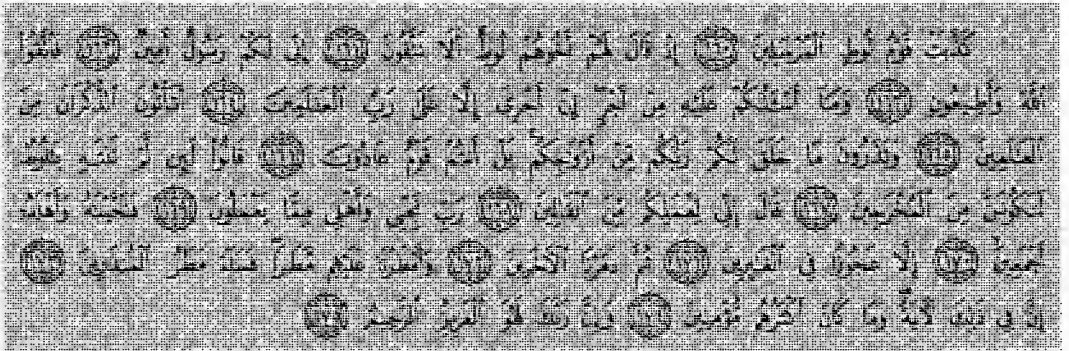 كَذَّبَتْ قَوْمُ لُوطٍ ٱلْمُرْسَلِينَ ١٦٠ إِذْ قَالَ لَهُمْ أَخُوهُمْ لُوطٌ أَلَا تَتَّقُونَ ١٦١ إِنِّى لَكُمْ رَسُولٌ أَمِينٌ ١٦٢ فَٱتَّقُوا۟
ٱللَّهَ وَأَطِيعُونِ ١٦٣ وَمَآ أَسْـَٔلُكُمْ عَلَيْهِ مِنْ أَجْرٍ إِنْ أَجْرِىَ إِلَّا عَلَىٰ رَبِّ ٱلْعَـٰلَمِينَ ١٦٤ أَتَأْتُونَ ٱلذُّكْرَانَ مِنَ
ٱلْعَـٰلَمِينَ ١٦٥ وَتَذَرُونَ مَا خَلَقَ لَكُمْ رَبُّكُم مِّنْ أَزْوَٰجِكُم بَلْ أَنتُمْ قَوْمٌ عَادُونَ ١٦٦ قَالُوا۟ لَئِن لَّمْ تَنتَهِ يَـٰلُوطُ
لَتَكُونَنَّ مِنَ ٱلْمُخْرَجِينَ ١٦٧ قَالَ إِنِّى لِعَمَلِكُم مِّنَ ٱلْقَالِينَ ١٦٨ رَبِّ نَجِّنِى وَأَهْلِى مِمَّا يَعْمَلُونَ ١٦٩ فَنَجَّيْنَـٰهُ وَأَهْلَهُۥٓ
أَجْمَعِينَ ١٧٠ إِلَّا عَجُوزًا فِى ٱلْغَـٰبِرِينَ ١٧١ ثُمَّ دَمَّرْنَا ٱلْـَٔاخَرِينَ ١٧٢ وَأَمْطَرْنَا عَلَيْهِم مَّطَرًا فَسَآءَ مَطَرُ ٱلْمُنذَرِينَ ١٧٣
إِنَّ فِى ذَٰلِكَ لَـَٔايَةً وَمَا كَانَ أَكْثَرُهُم مُّؤْمِنِينَ ١٧٤ وَإِنَّ رَبَّكَ لَهُوَ ٱلْعَزِيزُ ٱلرَّحِيمُ ١٧٥